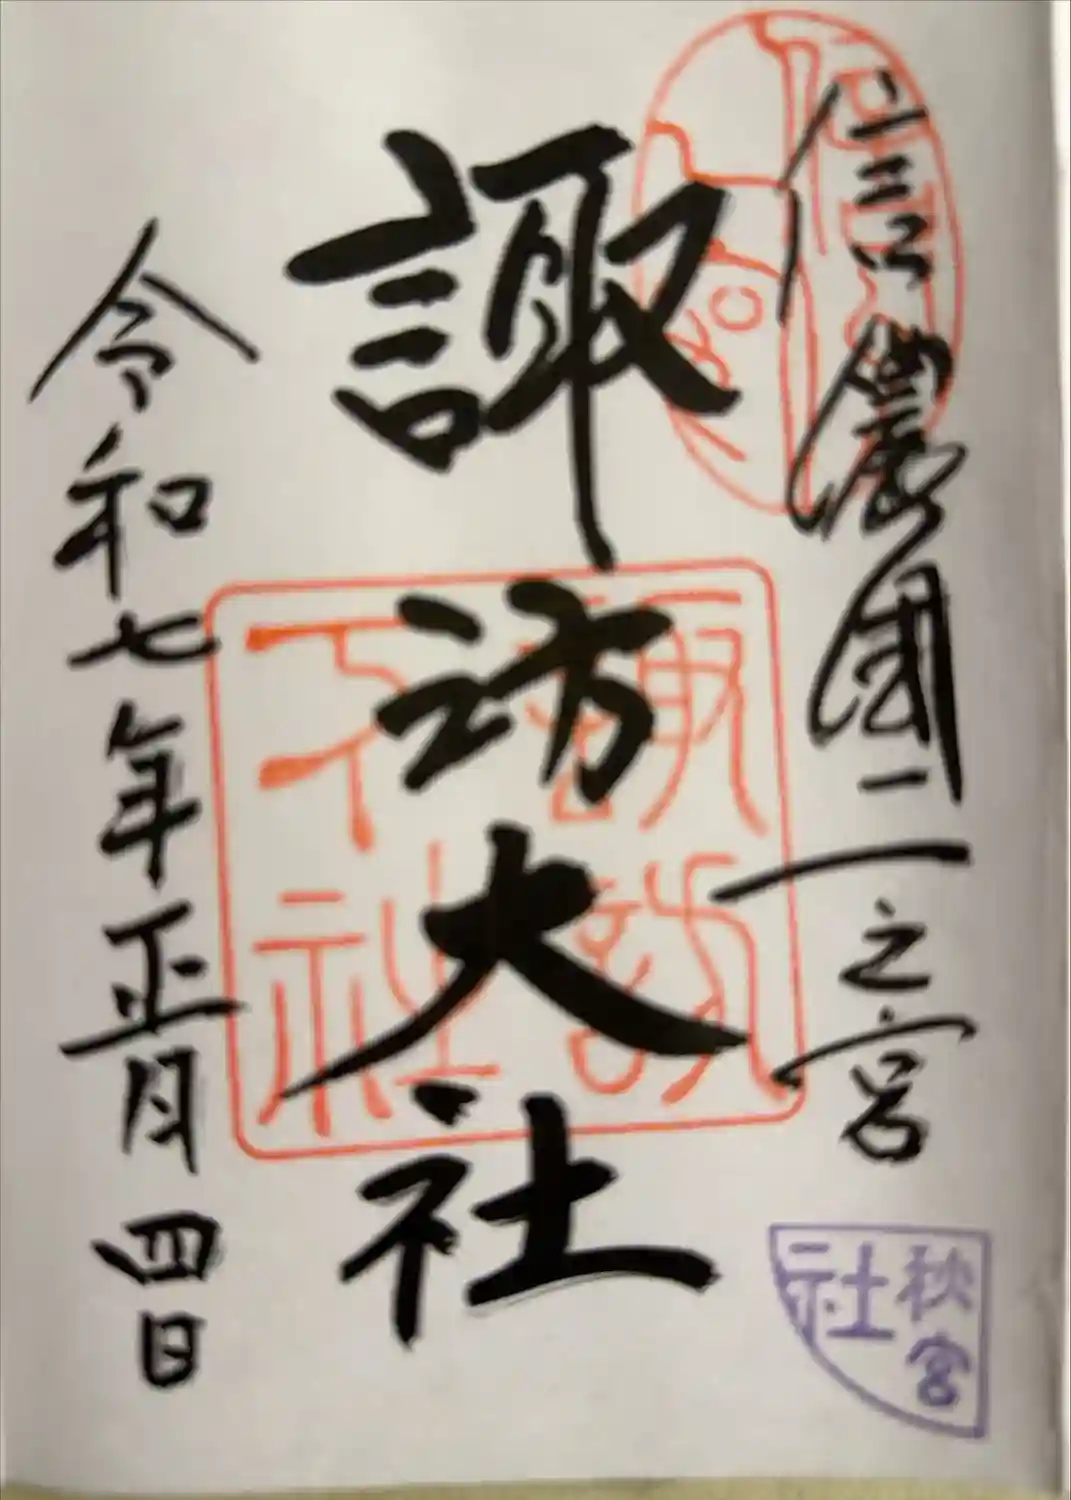 信濃國一之宮
諏訪大社
令和七年正月四日
諏訪
下社
秋宮
社